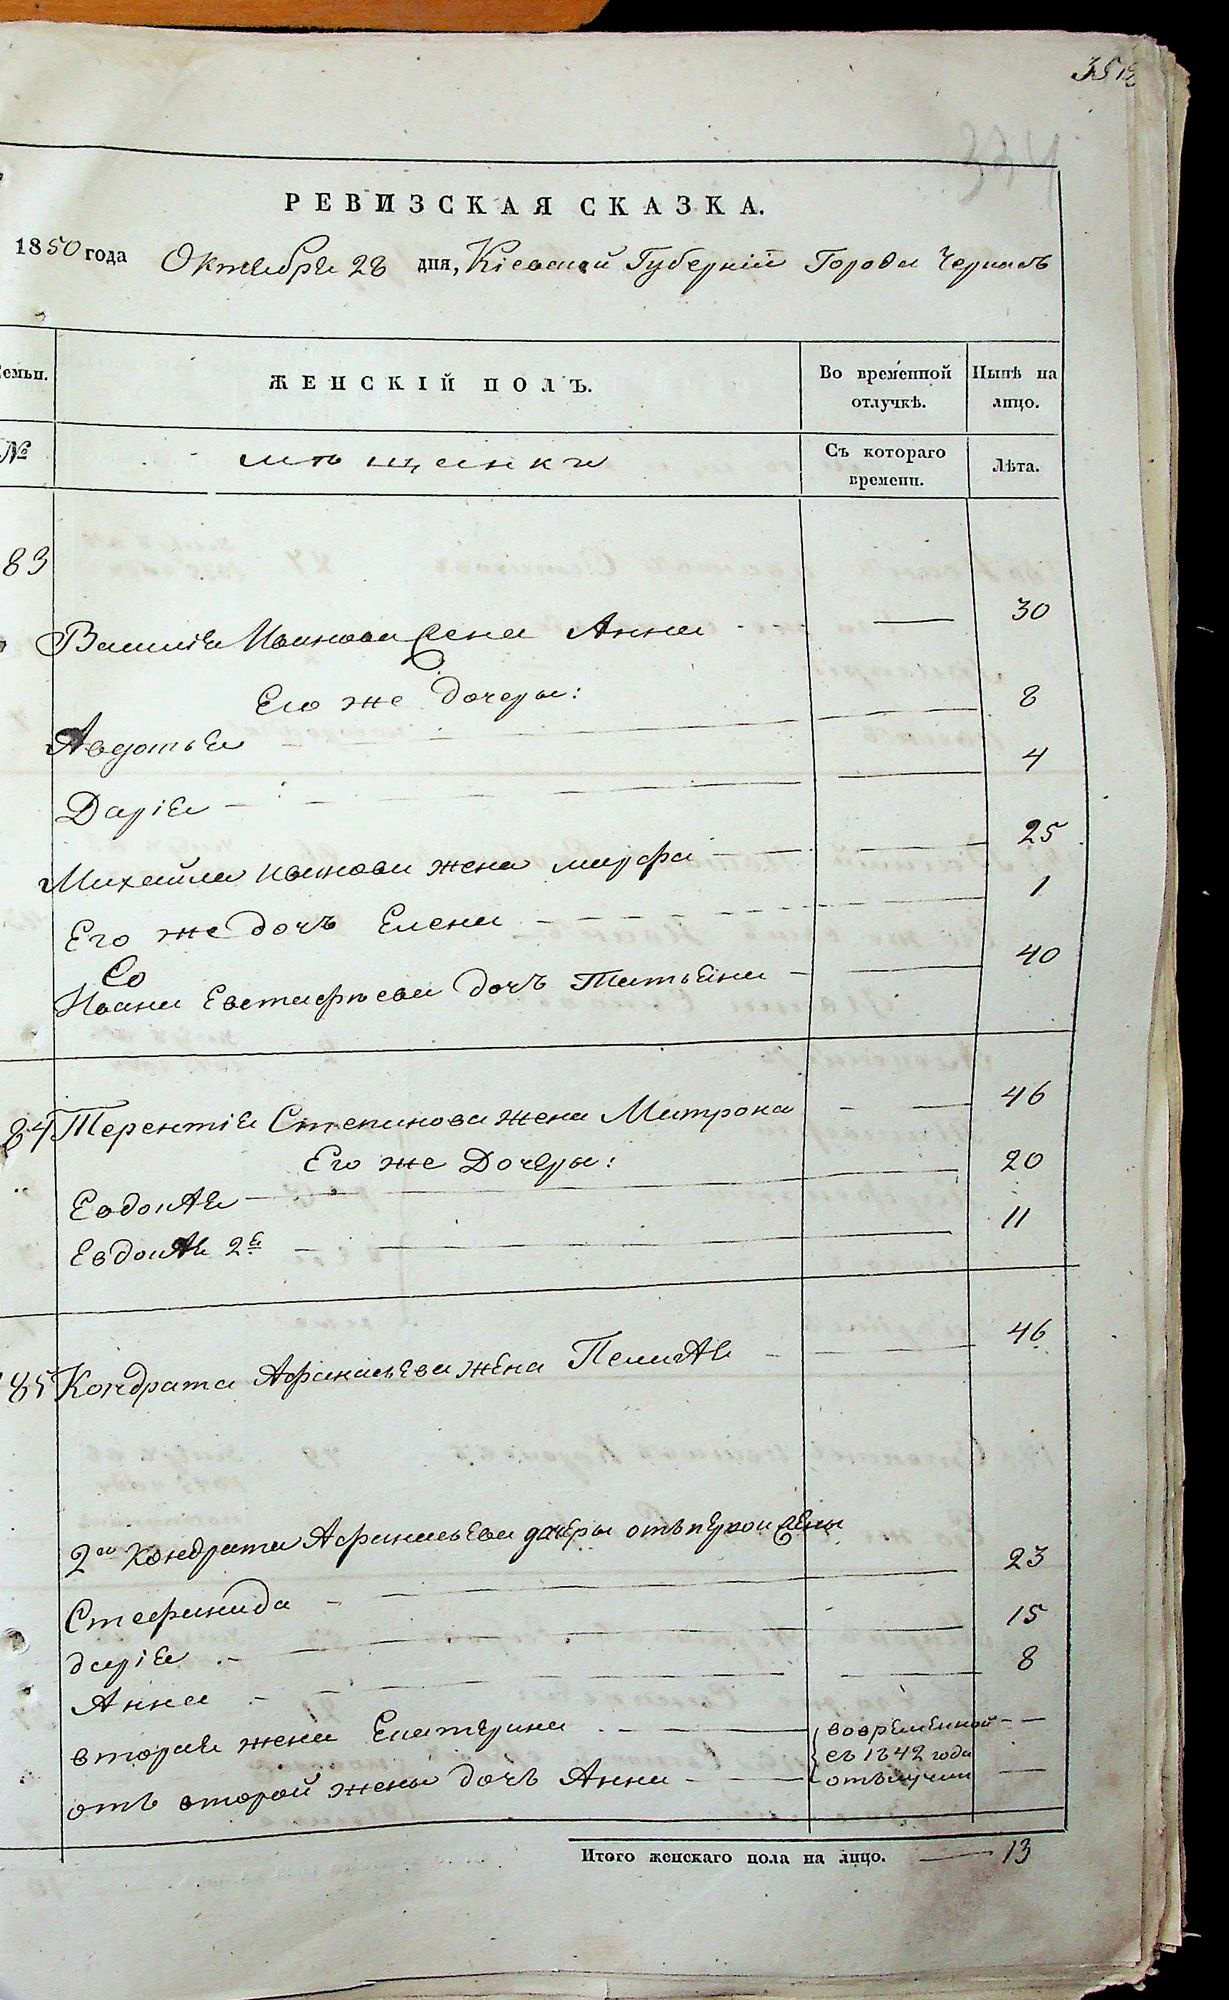 РЕВИЗСКАЯ СКАЗКА.
1850 года Октября 28 дня, Кіевской Губерніи Города Черкасъ
Семьи. ЖЕНСКІЙ ПОЛЪ. Во временной отлучкѣ. Нынѣ на лицо.
№ мѣщанки Съ котораго времени. Лѣта.
83
Василія Иванова жена Анна — 30
Его же дочеры:
Авдотья — 8
Дарія — 4
Михайла Иванова жена Марфа — 25
Его же дочъ Елена — 1
Ивана Евстафіева дочъ Татьяна — 40
84 Терентія Степанова жена Матрона — 46
Его же Дочеры:
Евдокія — 20
Евдокія 2я — 11
185 Кондрата Афанасьева жена Пелагія — 46
2й Кондрата Афанасьева дочеры отъ первой жены
Стефанида — 23
Дарія — 15
Анна — 8
вторая жена Екатерина — вовременной —
съ 1842 года
отъ второй жены дочъ Анна — отълучки —
Итого женскаго пола на лицо. — 13